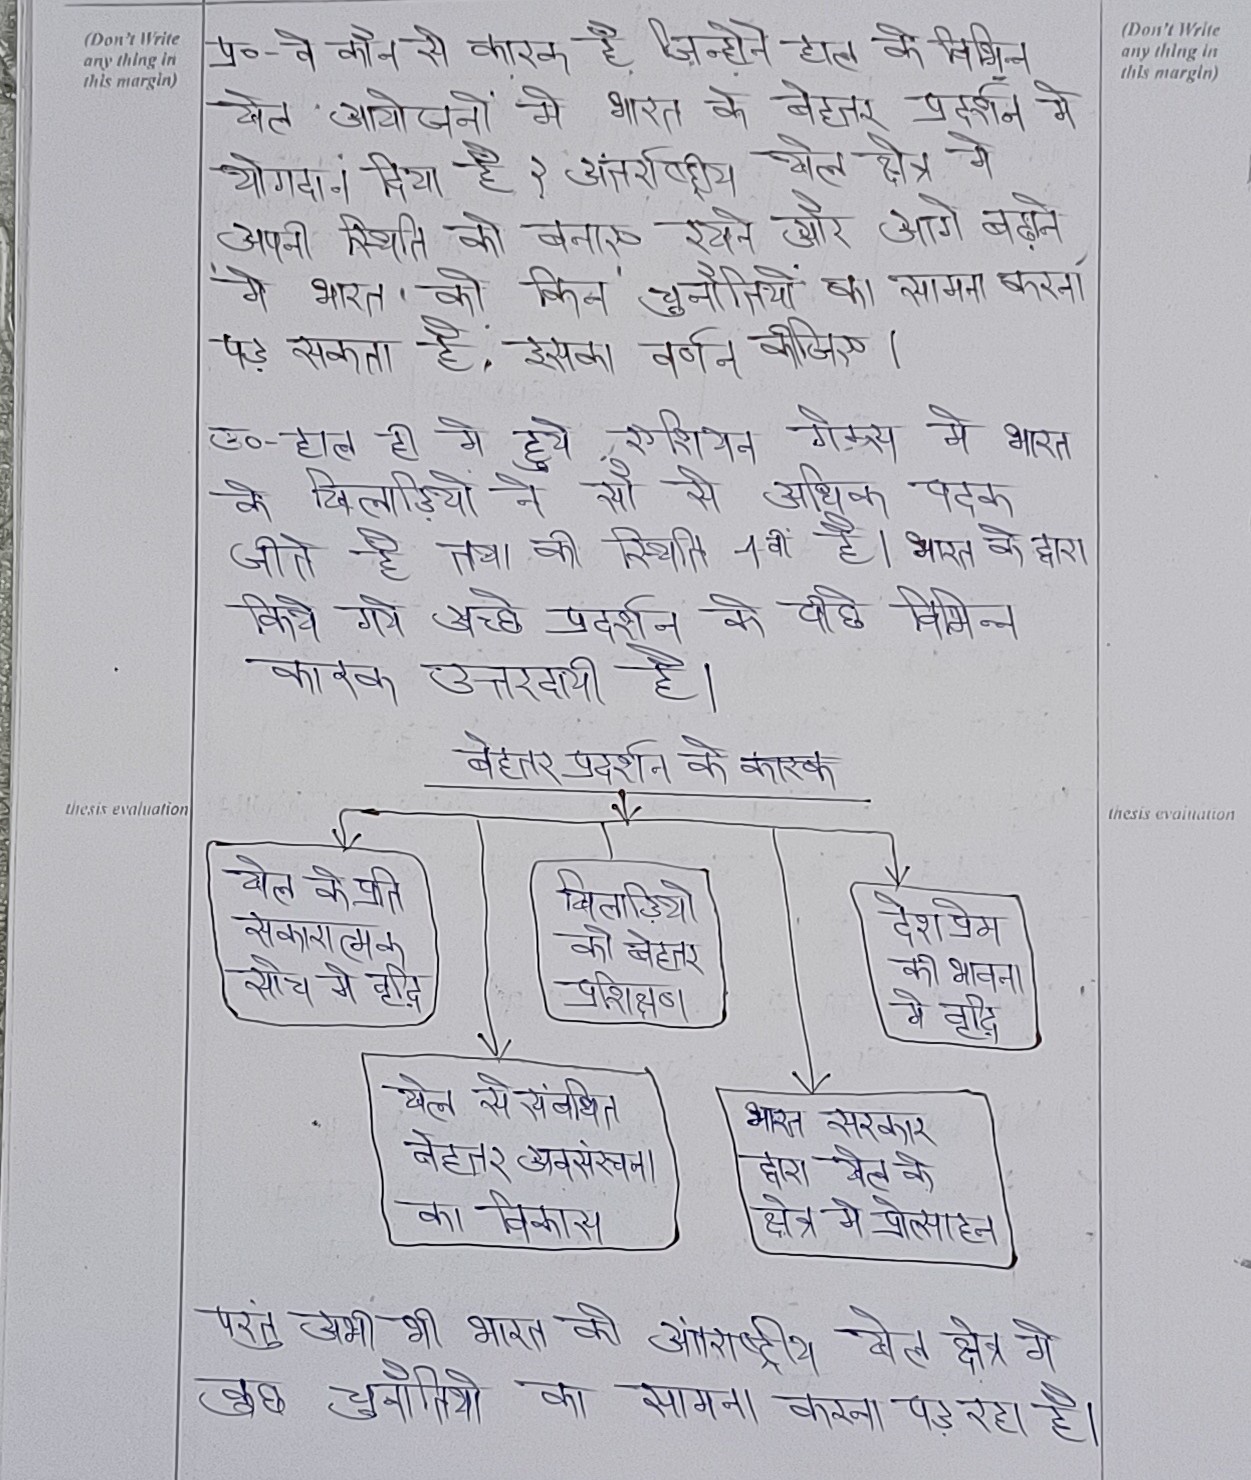 (Don't Write
any thing in
this margin)
(Don't Write
any thing in
this margin)
प्र०- वे कौन से कारक है जिन्होने हाल के विभिन
खेल आयोजनों मे भारत के बेहतर प्रदर्शन मे
योगदान दिया है ? अंतर्राष्ट्रीय खेल क्षेत्र मे
अपनी स्थिति को बनाए रखने और आगे बढ़ाने
मे भारत को किन चुनौतियों का सामना करना
पड़ सकता है, इसका वर्णन कीजिए ।
उ०- हाल ही मे हुये एशियन गेम्स मे भारत
के खिलाड़ियों ने सौ से अधिक पदक
जीते है तथा की स्थिति 4वीं है। भारत के द्वारा
किये गये अच्छे प्रदर्शन के पीछे विभिन्न
कारक उत्तरदायी है।
बेहतर प्रदर्शन के कारक
thesis evaluation
thesis evaluation
खेल के प्रति
सकारात्मक
सोच मे वृद्धि
खिलाड़ियो
को बेहतर
प्रशिक्षण
देश प्रेम
की भावना
मे वृद्धि
खेल से संबंधित
बेहतर अवसंरचना
का विकास
भारत सरकार
द्वारा खेल के
क्षेत्र मे प्रोत्साहन
परंतु अभी भी भारत को अंतराष्ट्रीय खेल क्षेत्र मे
कुछ चुनौतियो का सामना करना पड़ रहा है।